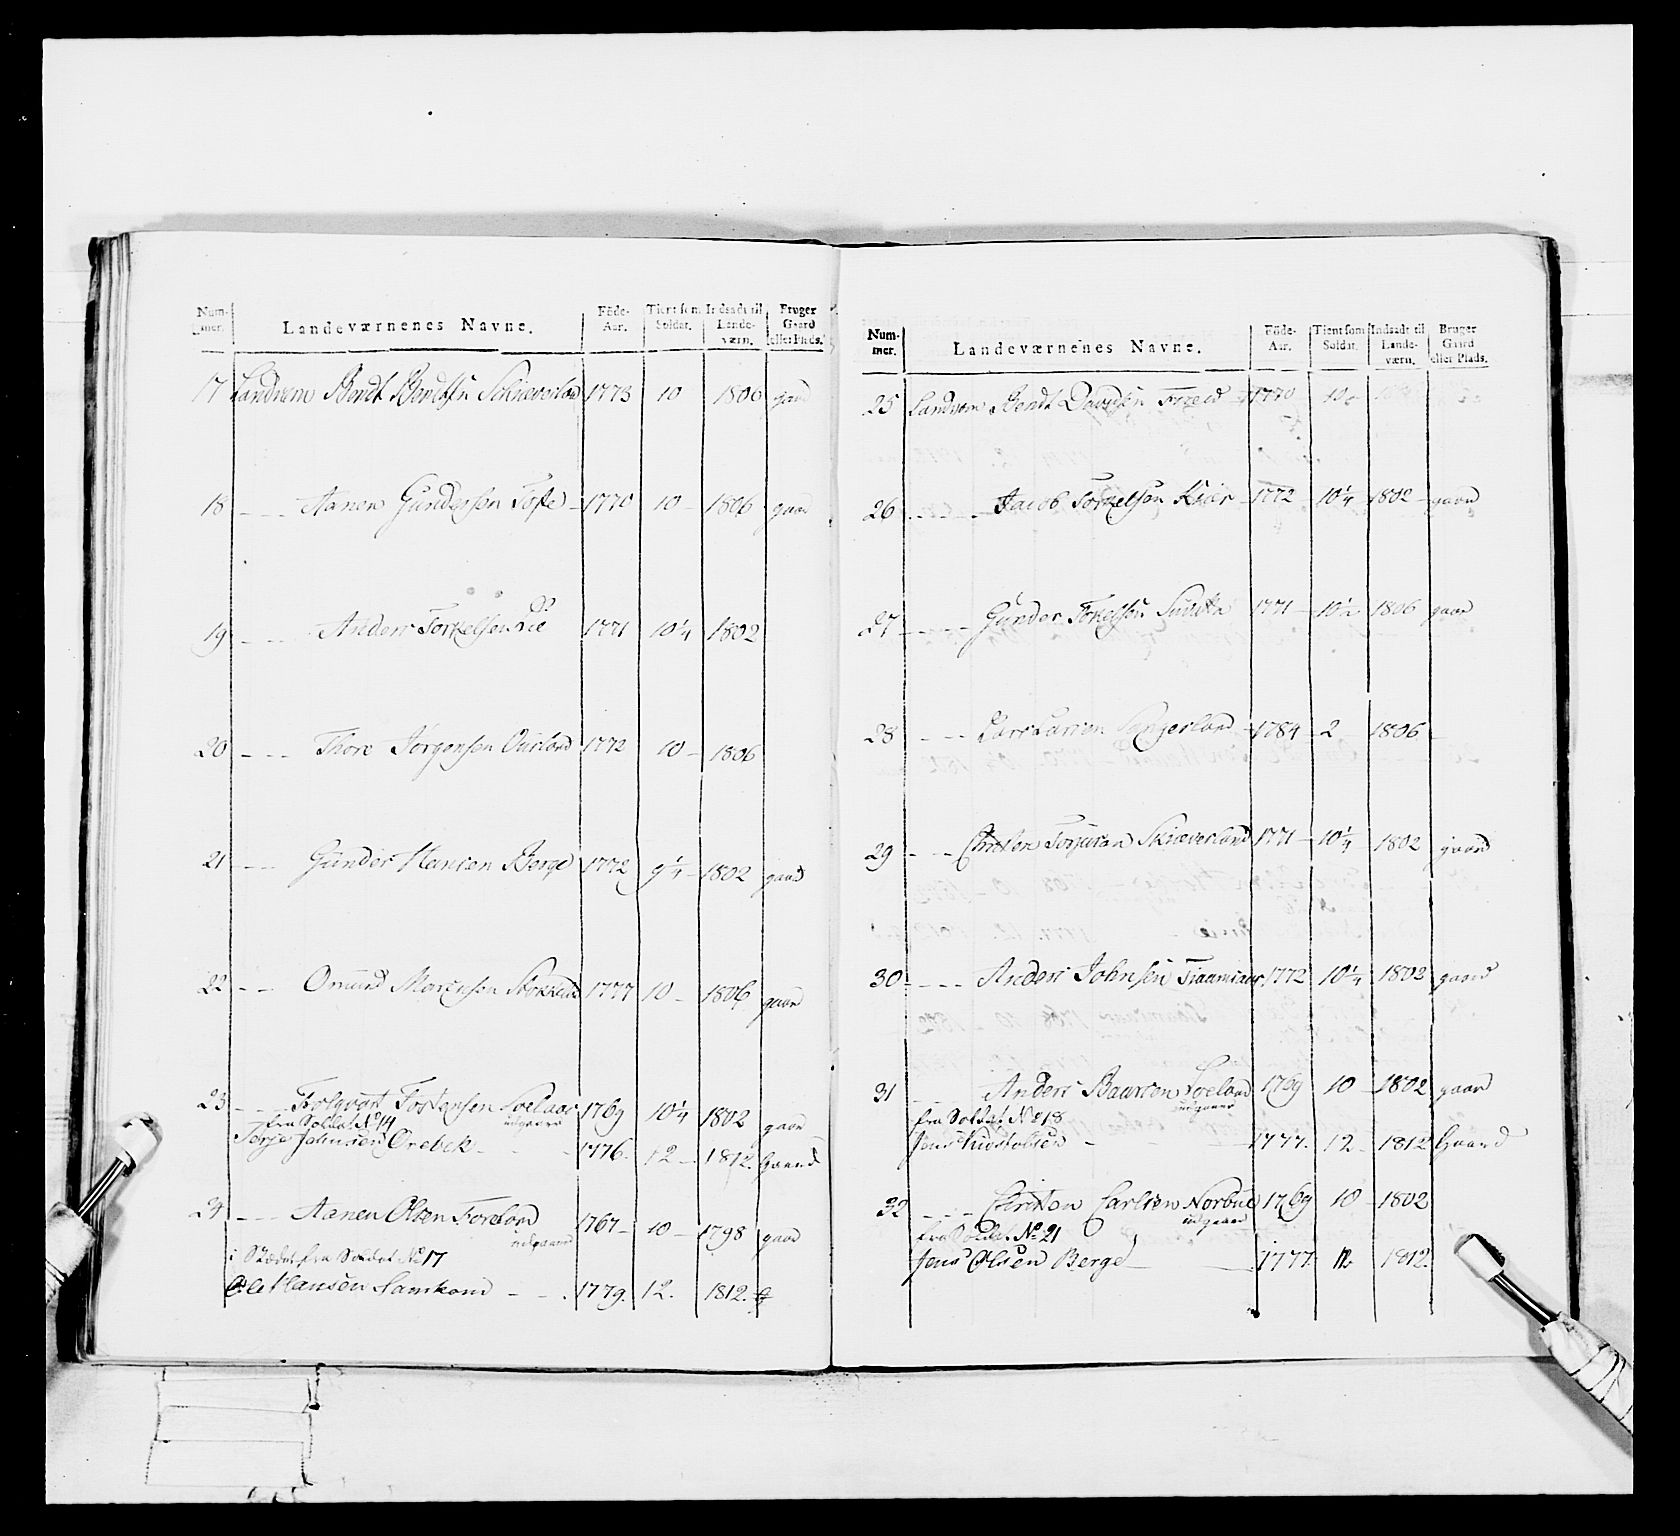 Num-mer. Landeværnenes Navne. Föde-Aar. Tient som Soldat. Indsadt til Lande-værn. Bruger Gaard eller Plads.
17 Landværn Bendt Bendtsen Skiæveland 1773 10 1806 gaard
18 - - Aanen Gundersen Tofte 1770 10 - 1806 gaard
19 - - Anders Torkelsen 1771 10¼ 1802
20 - - Thore Jörgensen Ousland 1772 10 - 1806
21 - - Gunder Hansen Berge 1772 9¼ - 1802 gaard
22 - - Omund Mortensen 1777 10 - 1806 gaard
23 - - Folqvart Tostensen 1769 10¼ 1802 gaard
udgaaer
fra Soldat No 14
Terje Johnsen Orebek - - - 1776. 12 - 1812. Gaard
24 - - Aanen Olsen Foreland 1767 - 10 - 1798 gaard
udgaaer
i Stædet fra Soldat No 17
Ole Hansen - - . 1779. 12. 1812. g
Num-mer. Landeværnenes Navne. Föde-Aar. Tient som Soldat. Indsadt til Lande-værn. Bruger Gaard eller Plads.
25 Landværn Bendt Davidsen 1770 10
26 - - - Jacob Torkelsen 1772 10¼ 1802 - gaard
27 - - - Gunder Torkelsen 1771 - 10½ 1806 gaard
28 - - Lars Larsen 1784 - 2 1806 -
29 - - Christen Torjusen Skiæveland 1771 - 10¼ 1802 gaard
30 - - - Anders Johnsen 1772 10¼ - 1802 gaard
31 - - - Anders Baarsen 1769 10 - 1802 gaard
udgaaer
fra Soldat No 18
Jens - - 1777. 12. 1812 Gaard
32 - - - Christen Carlsen Norbue 1769 10 - 1802
udgaaer
fra Soldat No 21
Jens Olsen Berge - 1777. 12 1812.